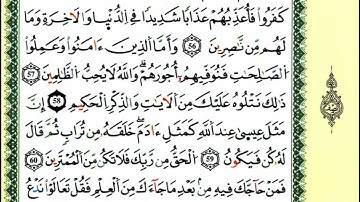 كَفَرُوا۟ فَأُعَذِّبُهُمْ عَذَابًا شَدِيدًا فِى ٱلدُّنْيَا وَٱلْـَٔاخِرَةِ وَمَا
لَهُم مِّن نَّـٰصِرِينَ 56 وَأَمَّا ٱلَّذِينَ ءَامَنُوا۟ وَعَمِلُوا۟
ٱلصَّـٰلِحَـٰتِ فَنُوَفِّيهِمُۥٓ أُجُورَهُمْ وَٱللَّهُ لَا يُحِبُّ ٱلظَّـٰلِمِينَ 57
ذَٰلِكَ نَتْلُوهُ عَلَيْكَ مِنَ ٱلْـَٔايَـٰتِ وَٱلذِّكْرِ ٱلْحَكِيمِ 58 إِنَّ
مَثَلَ عِيسَىٰ عِندَ ٱللَّهِ كَمَثَلِ ءَادَمَ خَلَقَهُۥ مِن تُرَابٍ ثُمَّ قَالَ
لَهُۥ كُن فَيَكُونُ 59 ٱلْحَقُّ مِن رَّبِّكَ فَلَا تَكُن مِّنَ ٱلْمُمْتَرِينَ 60
فَمَنْ حَآجَّكَ فِيهِ مِنۢ بَعْدِ مَا جَآءَكَ مِنَ ٱلْعِلْمِ فَقُلْ تَعَالَوْا۟ نَدْعُ